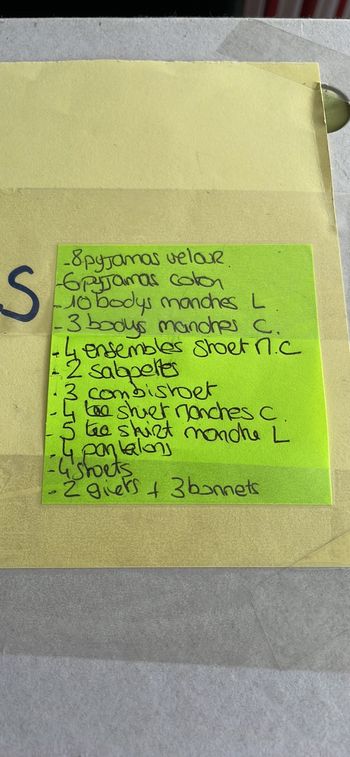 S
- 8 pyjamas velour
- 6 pyjamas coton
- 10 bodys manches L
- 3 bodys manches C.
- 4 ensembles short M.C
- 2 salopettes
- 3 combishort
- 4 tee shirt manches C
- 5 tee shirt manche L
- 4 pantalons
- 4 shorts
- 2 gilets + 3 bonnets